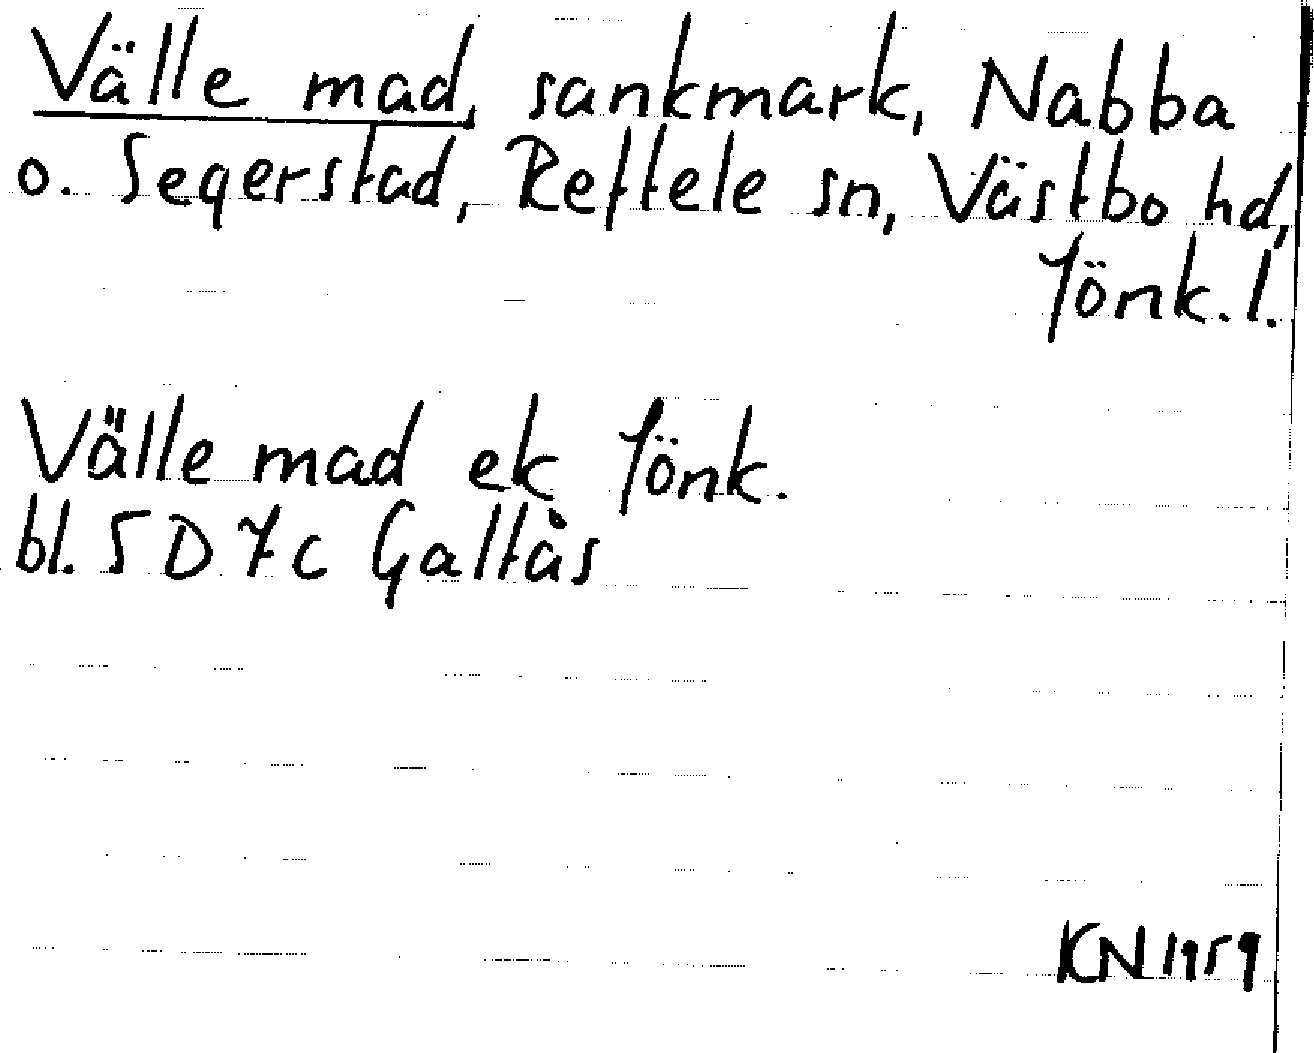 Välle mad, sankmark, Nabba
o. Segerstad, Reftele sn, Västbo hd,
Jönk. l.
Välle mad ek Jönk.
bl. 5 D 7 c Galtås
KN 1959